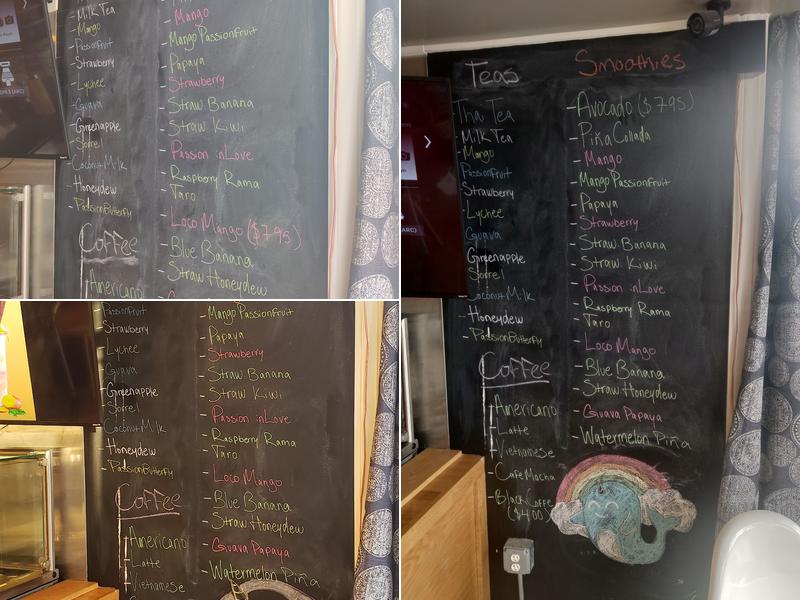 -Milk Tea
-Mango
-Passionfruit
-Strawberry
-Lychee
-Guava
-Greenapple
-Sorrel
-Coconut Milk
-Honeydew
-PassionButterfly
Coffee
-Americano
-Mango
-Mango PassionFruit
-Papaya
-Strawberry
-Straw Banana
-Straw Kiwi
-Passion inLove
-Raspberry Rama
-Taro
-Loco Mango ($7.95)
-Blue Banana
-Straw Honeydew
-Passionfruit
-Strawberry
-Lychee
-Guava
-Greenapple
-Sorrel
-Coconut Milk
-Honeydew
-PassionButterfly
Coffee
-Americano
-Latte
-Vietnamese
-Mango PassionFruit
-Papaya
-Strawberry
-Straw Banana
-Straw Kiwi
-Passion inLove
-Raspberry Rama
-Taro
-Loco Mango
-Blue Banana
-Straw Honeydew
-Guava Papaya
-Watermelon Piña
Teas
Thai Tea
-Milk Tea
-Mango
-Passionfruit
-Strawberry
-Lychee
-Guava
-Greenapple
-Sorrel
-Coconut Milk
-Honeydew
-PassionButterfly
Coffee
-Americano
-Latte
-Vietnamese
-Cafe Mocha
-Black Coffee
($4.00)
Smoothies
-Avocado ($7.95)
-Piña Colada
-Mango
-Mango PassionFruit
-Papaya
-Strawberry
-Straw Banana
-Straw Kiwi
-Passion inLove
-Raspberry Rama
-Taro
-Loco Mango
-Blue Banana
-Straw Honeydew
-Guava Papaya
-Watermelon Piña
(ARC)